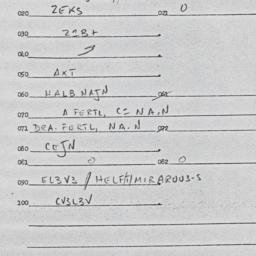 020 ZEKS 021 0
030 2=B+
040
050 AKT
060 HALB NAJN
070 A FERTL, C= NA.N
071 DRA. FORTL, NA.N 072
080 CEJN
081 0 082 0
090 EL3V3 / HELFT//MIRAROUS-S
100 CV3L3V